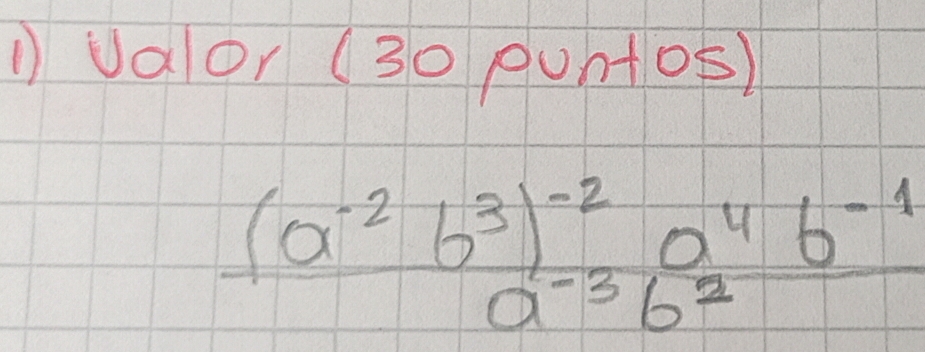 1) Valor (30 puntos)
(a⁻² b³)⁻² a⁴ b⁻¹
a⁻³ b²